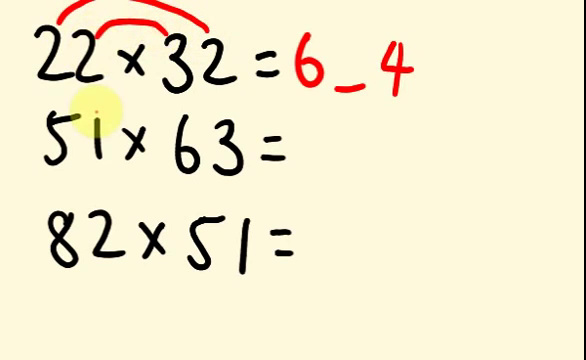 22 × 32 = 6_4
51 × 63 =
82 × 51 =